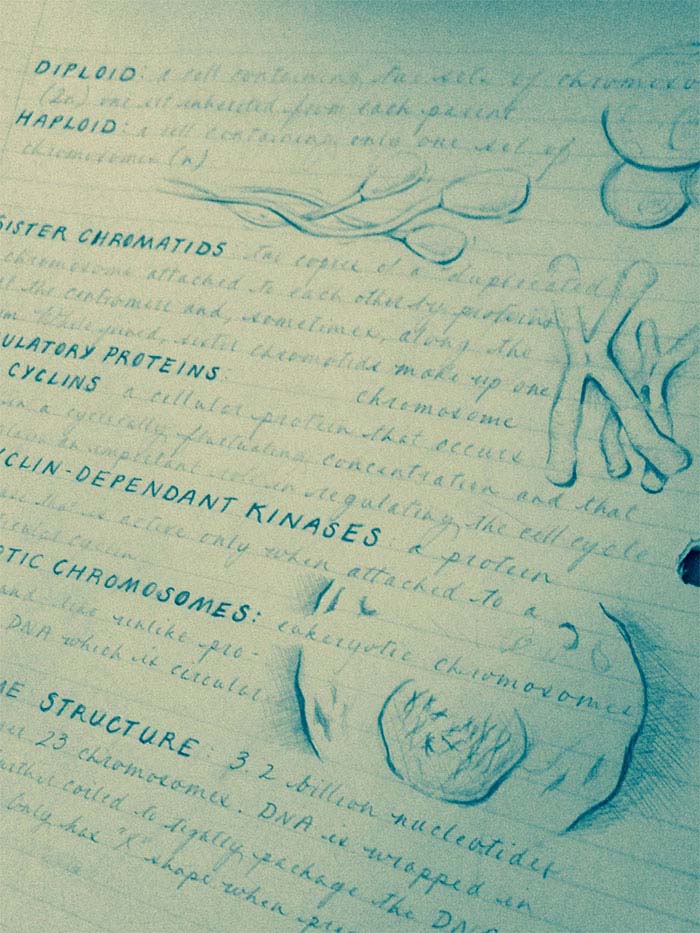 DIPLOID: a cell containing two sets of chromoso
(2n) one set inherited from each parent
HAPLOID: a cell containing only one set of
chromosomes (n)
SISTER CHROMATIDS: two copies of a duplicated
chromosome attached to each other by proteins
at the centromere and, sometimes, along the
While joined, sister chromatids make up one
chromosome
ULATORY PROTEINS:
CYCLINS a cellular protein that occurs
in a cyclically fluctuating concentration and that
plays an important role in regulating the cell cycle
YCLIN-DEPENDANT KINASES: a protein
that is active only when attached to a
cyclin
OTIC CHROMOSOMES: eukaryotic chromosomes
and line unlike pro-
DNA which is circular
ME STRUCTURE: 3.2 billion nucleotides
23 chromosomes. DNA is wrapped in
further coiled to tightly package the DNA
Only has "X" shape when pre